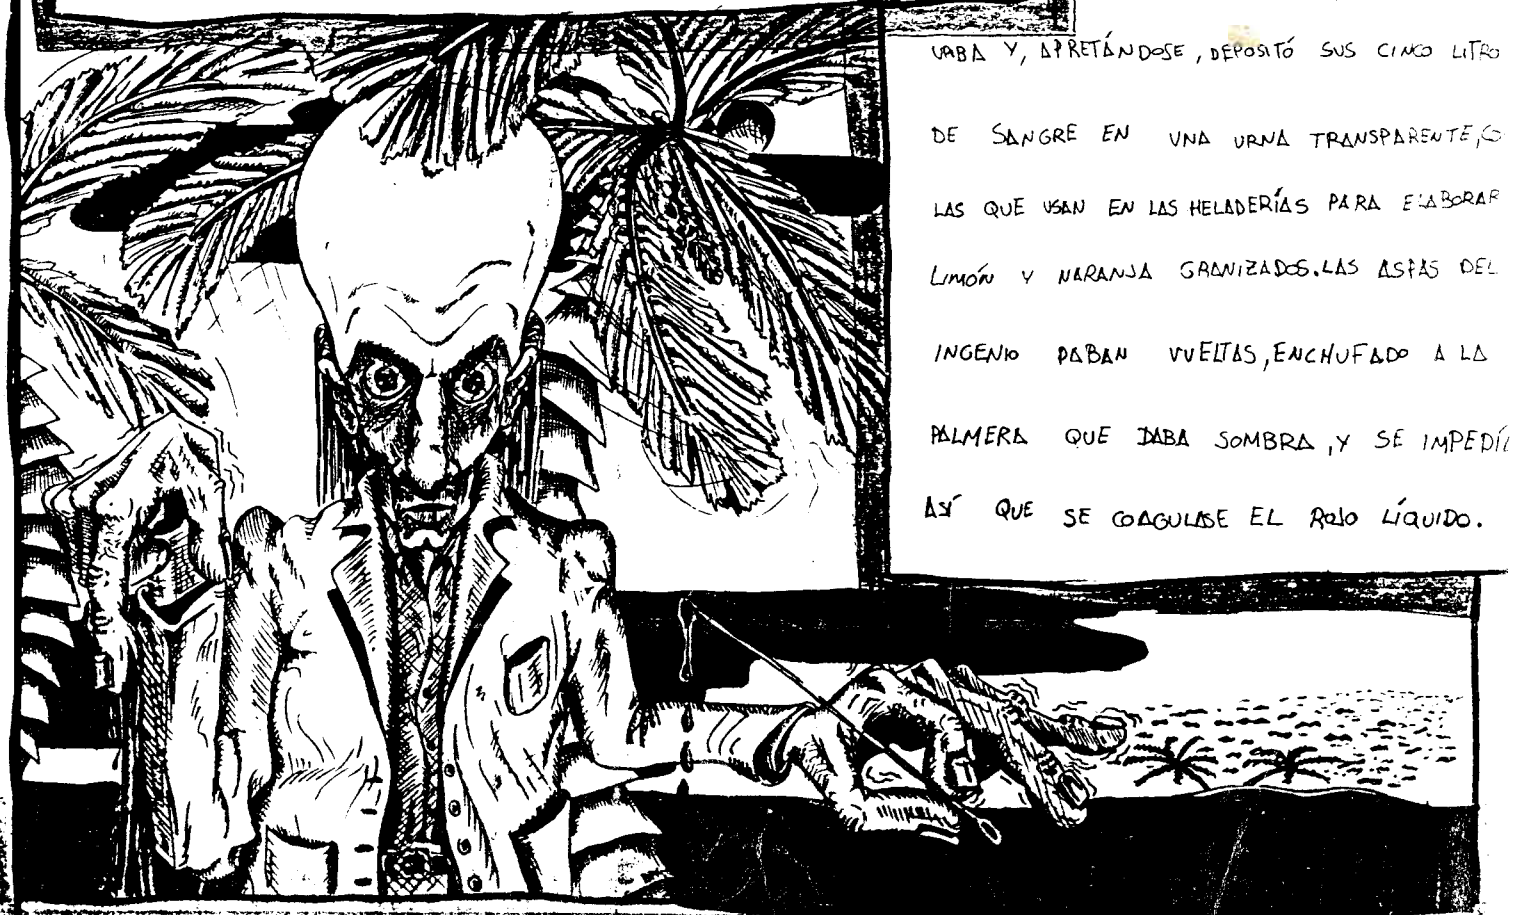 UABA Y, APRETÁNDOSE, DEPOSITÓ SUS CINCO LITRO
DE SANGRE EN UNA URNA TRANSPARENTE, CO
LAS QUE USAN EN LAS HELADERÍAS PARA ELABORAR
LIMÓN Y NARANJA GRANIZADOS. LAS ASPAS DEL
INGENIO DABAN VUELTAS, ENCHUFADO A LA
PALMERA QUE DABA SOMBRA, Y SE IMPEDÍA
ASÍ QUE SE COAGULASE EL ROJO LÍQUIDO.